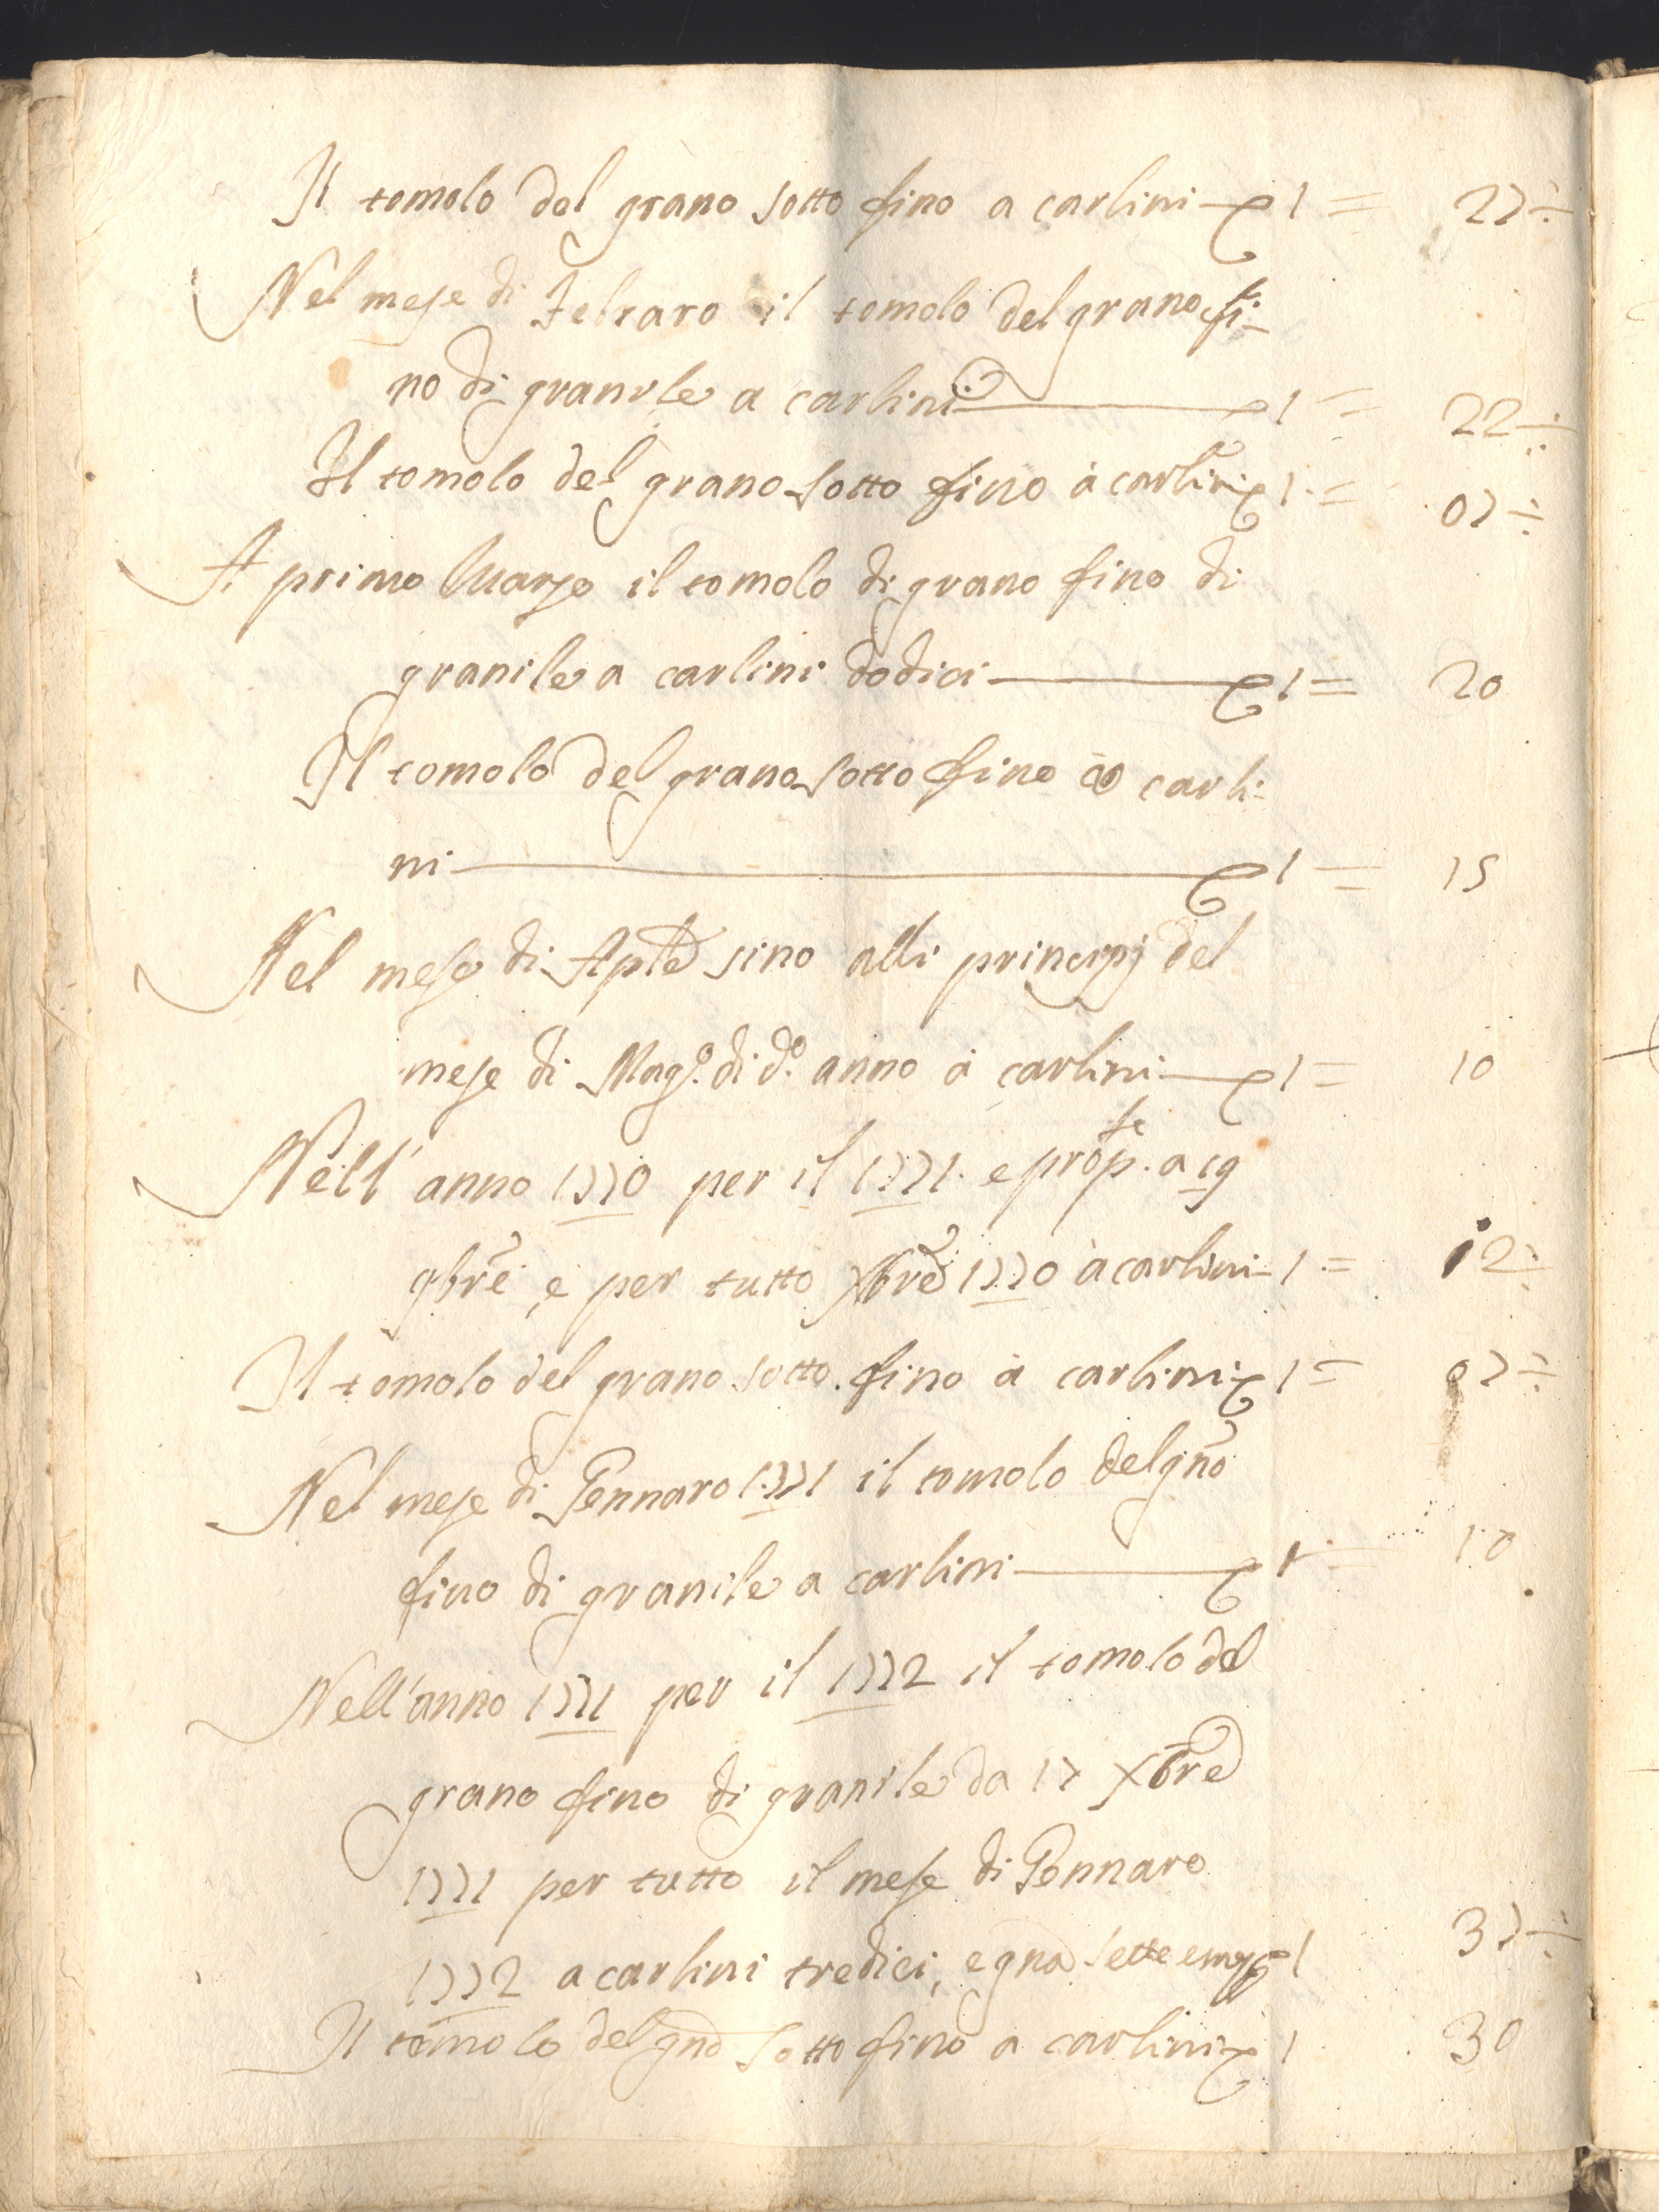 Il tomolo del grano sotto fino a carlini — 1 = 27÷
Nel mese di Febraro il tomolo del grano fi-
no di granile a carlini — 1 = 22÷
Il tomolo del grano sotto fino à carlini 1 = 07÷
A primo Marzo il tomolo di grano fino di
granile a carlini dodici — 1 = 20
Il tomolo del grano sotto fino à carli:
ni — 1 = 15
Nel mese di Aple sino alli principj del
mese di Mag.o di d.o anno à carlini — 1 = 10
Nell' anno 1770 per il 1771. e prop.te a 19
9bre, e per tutto Xbre 1770 à carlini 1 = 12÷
Il tomolo del grano sotto fino à carlini 1 = 07÷
Nel mese di Gennaro 1771 il tomolo del gno
fino di granile a carlini — 1 = 10
Nell'anno 1771 per il 1772 il tomolo del
grano fino di granile da 17 Xbre
1771 per tutto il mese di Gennaro
1772 a carlini tredici, e gna sette e mezzo 1 37÷
Il tomolo del gno sotto fino a carlini 1 30